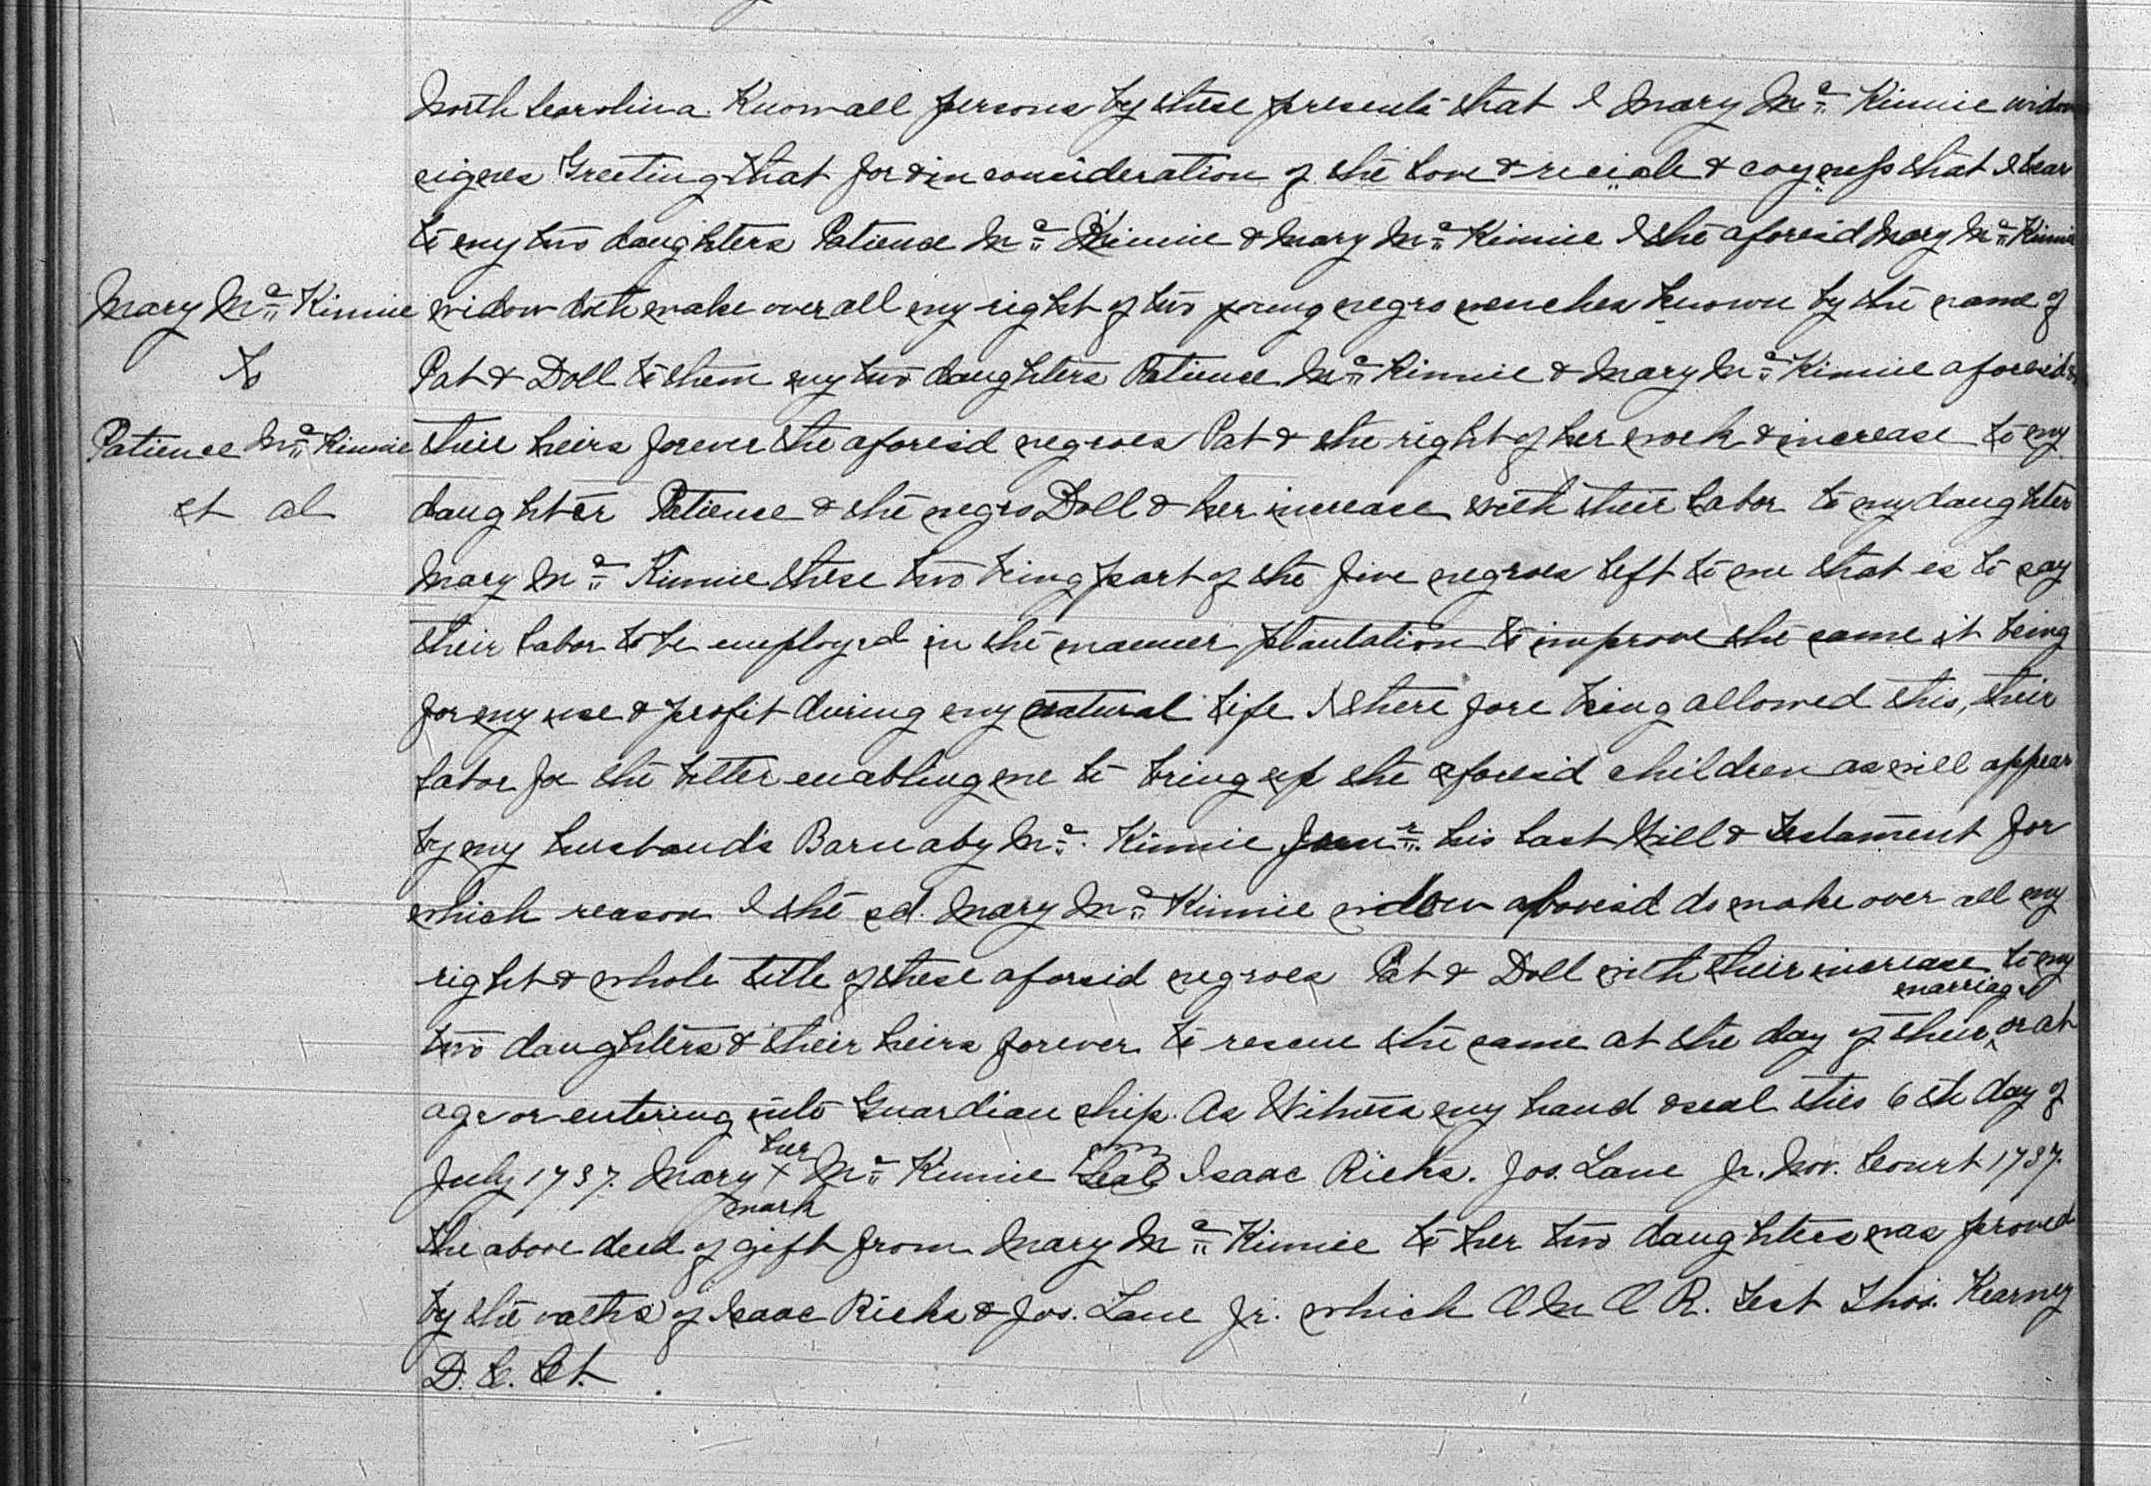 North Carolina. Know all persons by these presents that I Mary Mc Kinnie widow
signes Greeting that for & in consideration of the love & & that I bear
to my two daughters Patience Mc Kinnie & Mary Mc Kinnie I the aforesd Mary Mc Kinnie
Mary Mc Kinnie
widow doth make over all my right of two young negro wenches known by the name of
to
Pat & Doll to them my two daughters Patience Mc Kinnie & Mary Mc Kinnie aforesid &
Patience Mc Kinnie
their heirs forever the aforesid negroes Pat & the right of her work & increase to my
et al
daughter Patience & the negro Doll & her increase with their labor to my daughter
Mary Mc Kinnie these two being part of the five negroes left to me that is to say
their labor to be employed in the manner plantation to improve the same it being
for my use & profit during my natural life I there fore being allowed this, their
labor for the better enabling me to bring up the aforesid children as will appear
by my husband's Barnaby Mc Kinnie Junr his last Will & testament for
which reason I the sd. Mary Mc Kinnie widow aforesid do make over all my
right & whole title of these aforsid negroes Pat & Doll with their increase to my
two daughters & their heirs forever to rescue the same at the day of their marriage or at
age or entering into Guardian ship. As Witness my hand & seal this 6 th day of
July 1737. Mary her x mark Mc Kinnie Seal Isaac Ricks. Jos. Lane Jr. Nov. Court 1737.
The above deed of gift from Mary Mc Kinnie to her two daughters was proved
by the oaths of Isaac Ricks & Jos. Lane Jr. which O M O R. Test Thos. Kearney
D. C. Ct.